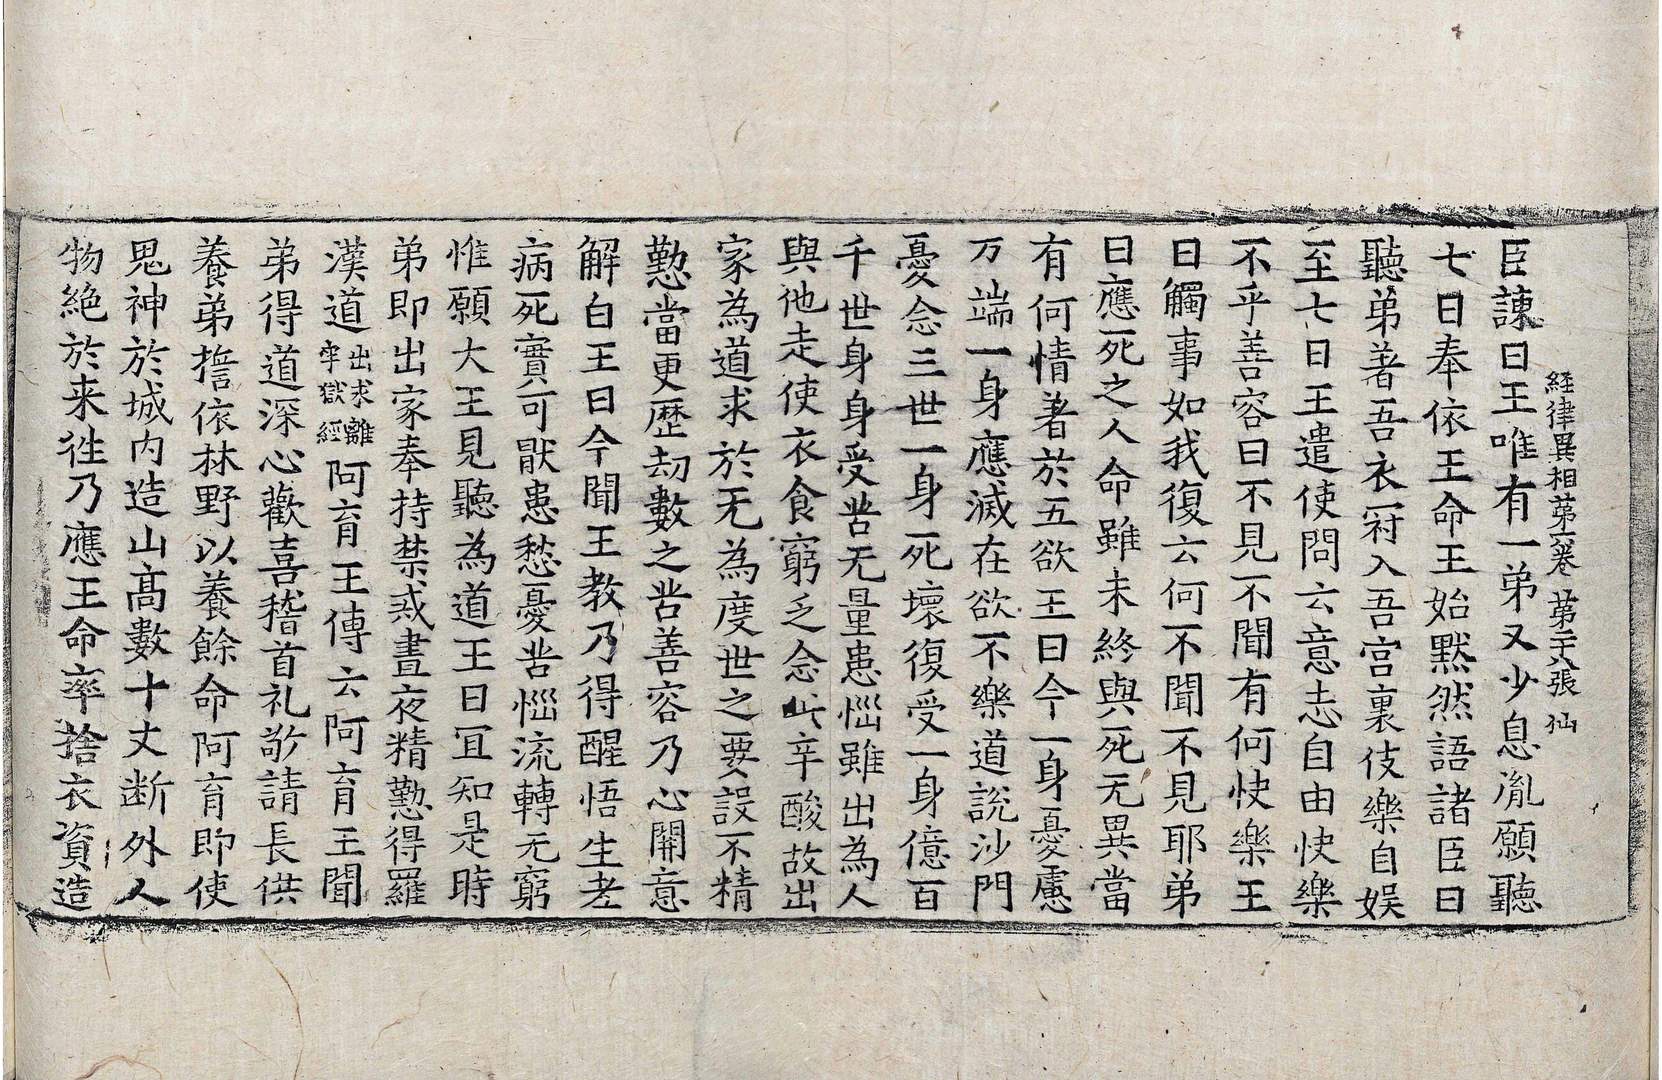 経律異相第六卷 第二十八張 仙
臣諫曰王唯有一弟又少息胤願聽
七日奉依王命王始默然語諸臣曰
聽弟著吾衣冠入吾宮裏伎樂自娛
至七日王遣使問云意志自由快樂
不乎善容曰不見不聞有何快樂王
曰觸事如我復云何不聞不見耶弟
曰應死之人命雖未終與死无異當
有何情著於五欲王曰今一身憂慮
万端一身應滅在欲不樂道說沙門
憂念三世一身死壞復受一身億百
千世身身受苦无量患惱雖出為人
與他走使衣食窮乏念此辛酸故出
家為道求於无為度世之要設不精
懃當更歷劫數之苦善容乃心開意
解白王曰今聞王教乃得醒悟生老
病死實可猒患愁憂苦惱流轉无窮
惟願大王見聽為道王曰冝知是時
弟即出家奉持禁戒晝夜精懃得羅
漢道出求離牢獄經阿育王傳云阿育王聞
弟得道深心歡喜稽首礼敬請長供
養弟誓依林野以養餘命阿育即使
鬼神於城內造山高數十丈断外人
物絶於来往乃應王命率捨衣資造